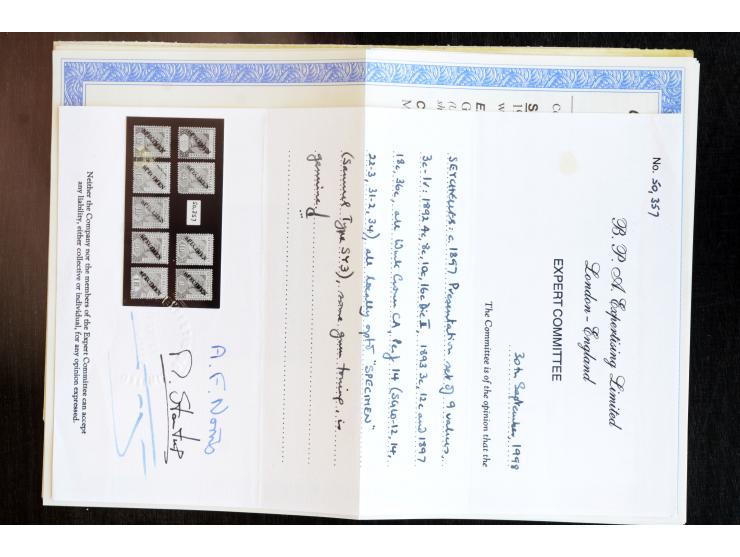 No. 50,357
B. P. A. Expertising Limited
London - England
EXPERT COMMITTEE
30th September, 1998
The Committee is of the opinion that the
SEYCHELLES: c. 1897 Presentation set of 9 values,
3c - 1r: 1892 4c, 8c, 10c, 16c Die II, 1893 3c, 12c and 1897
18c, 36c, all Wmk Crown CA, Perf 14 (SG 10-12, 14,
22-3, 31-2, 34), all locally optd "SPECIMEN"
(Samuel Type SY3), some gum toning, is
genuine.
50,357
SPECIMEN
SPECIMEN
SPECIMEN
SPECIMEN
SPECIMEN
SPECIMEN
SPECIMEN
SPECIMEN
SPECIMEN
A. F. Norris
P. Startup
Neither the Company nor the members of the Expert Committee can accept
any liability, either collective or individual, for any opinion expressed.